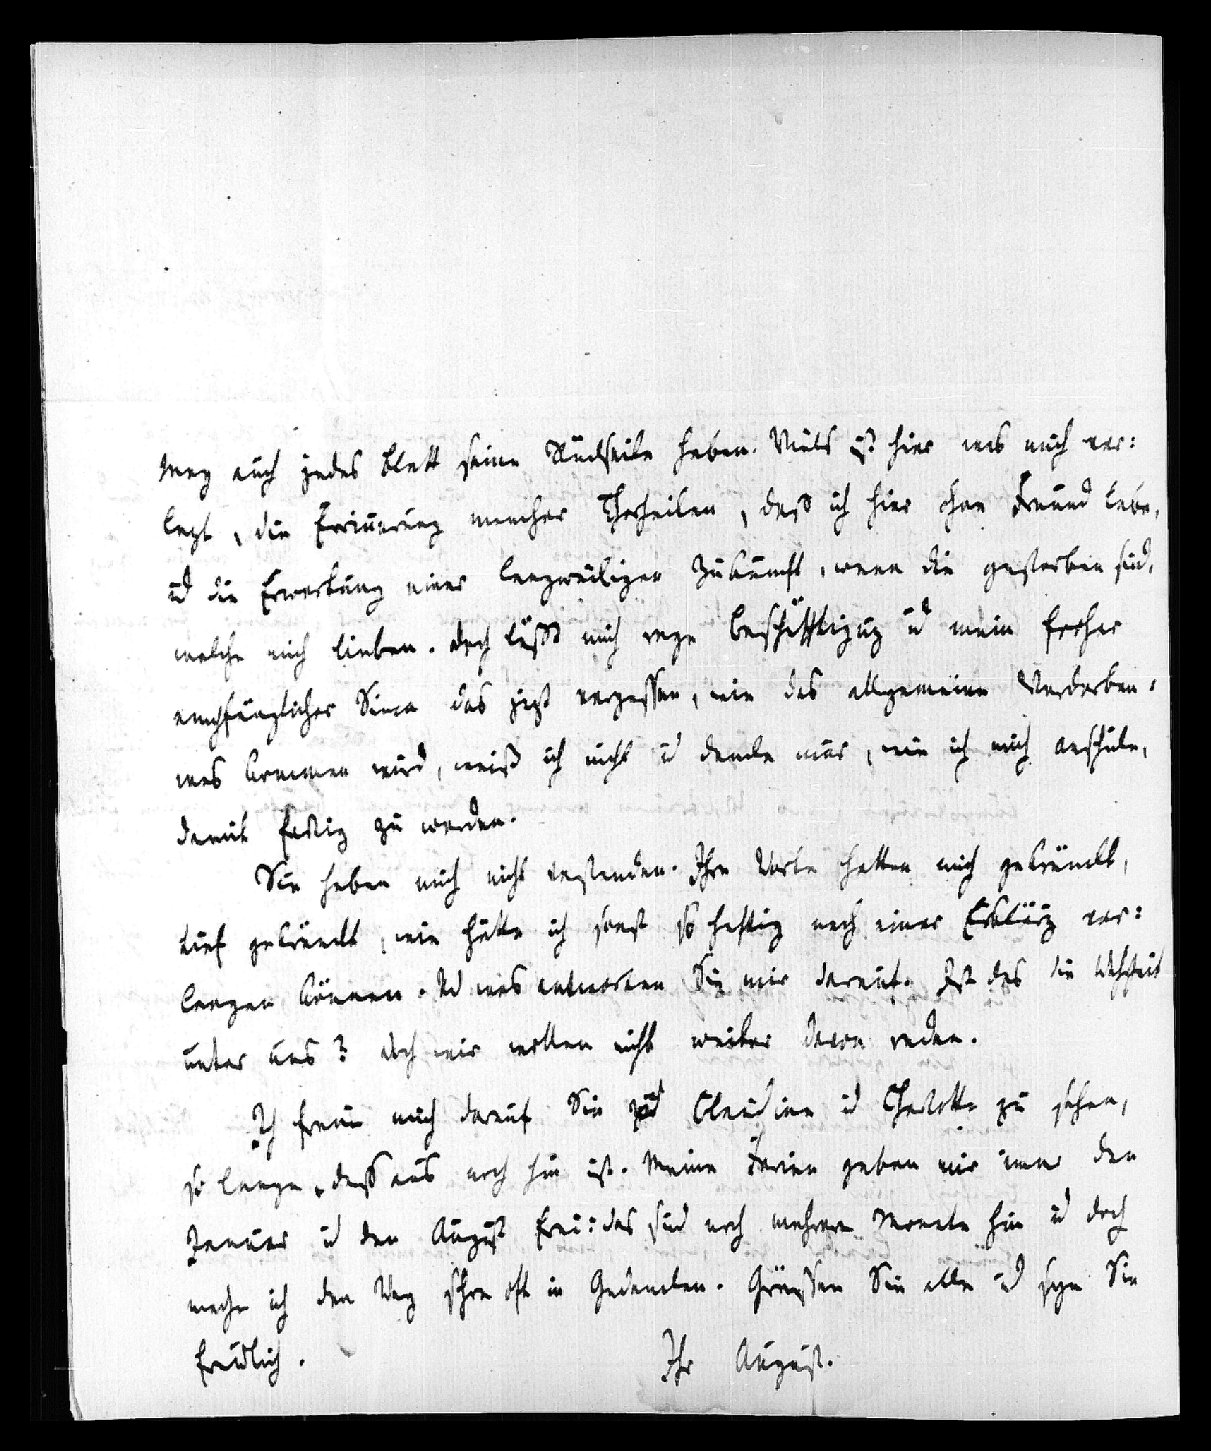 mag auch jedes Blatt seine Rückseite haben. Vieles ist hier was mich ver:
letzt, die Erinnerung mancher Thorheiten, daß ich hier ohne Freund lebe,
ud die Erwartung einer langweiligen Zukunft, wenn die gestorben sind,
welche mich lieben. doch läßt mich rege Beschäfftigung ud mein froher
empfänglicher Sinn das jezt vergessen, wie das allgemeine Verderben:
was kommen wird, weiß ich nicht ud denke nur, wie ich mich anschicke,
damit fertig zu werden.
Sie haben mich nicht verstanden. Ihre Worte hatten mich gekränckt,
tief gekränckt, wie hätte ich sonst so heftig nach einer Erklärung ver:
langen können. Ud was antworten Sie mir darauf. Ist das die Wahrheit
unter uns? doch wir wollen nicht weiter davon reden.
Ich freue mich darauf Sie ud Claudine ud Charlotte zu sehen,
so lange, das auch noch hin ist. Meine Ferien geben mir immer den
Januar ud den August frei: das sind noch mehrere Monate hin ud doch
mache ich den Weg schon oft in Gedancken. Grüssen Sie alle ud seyn Sie
freudlich.
Ihr August.